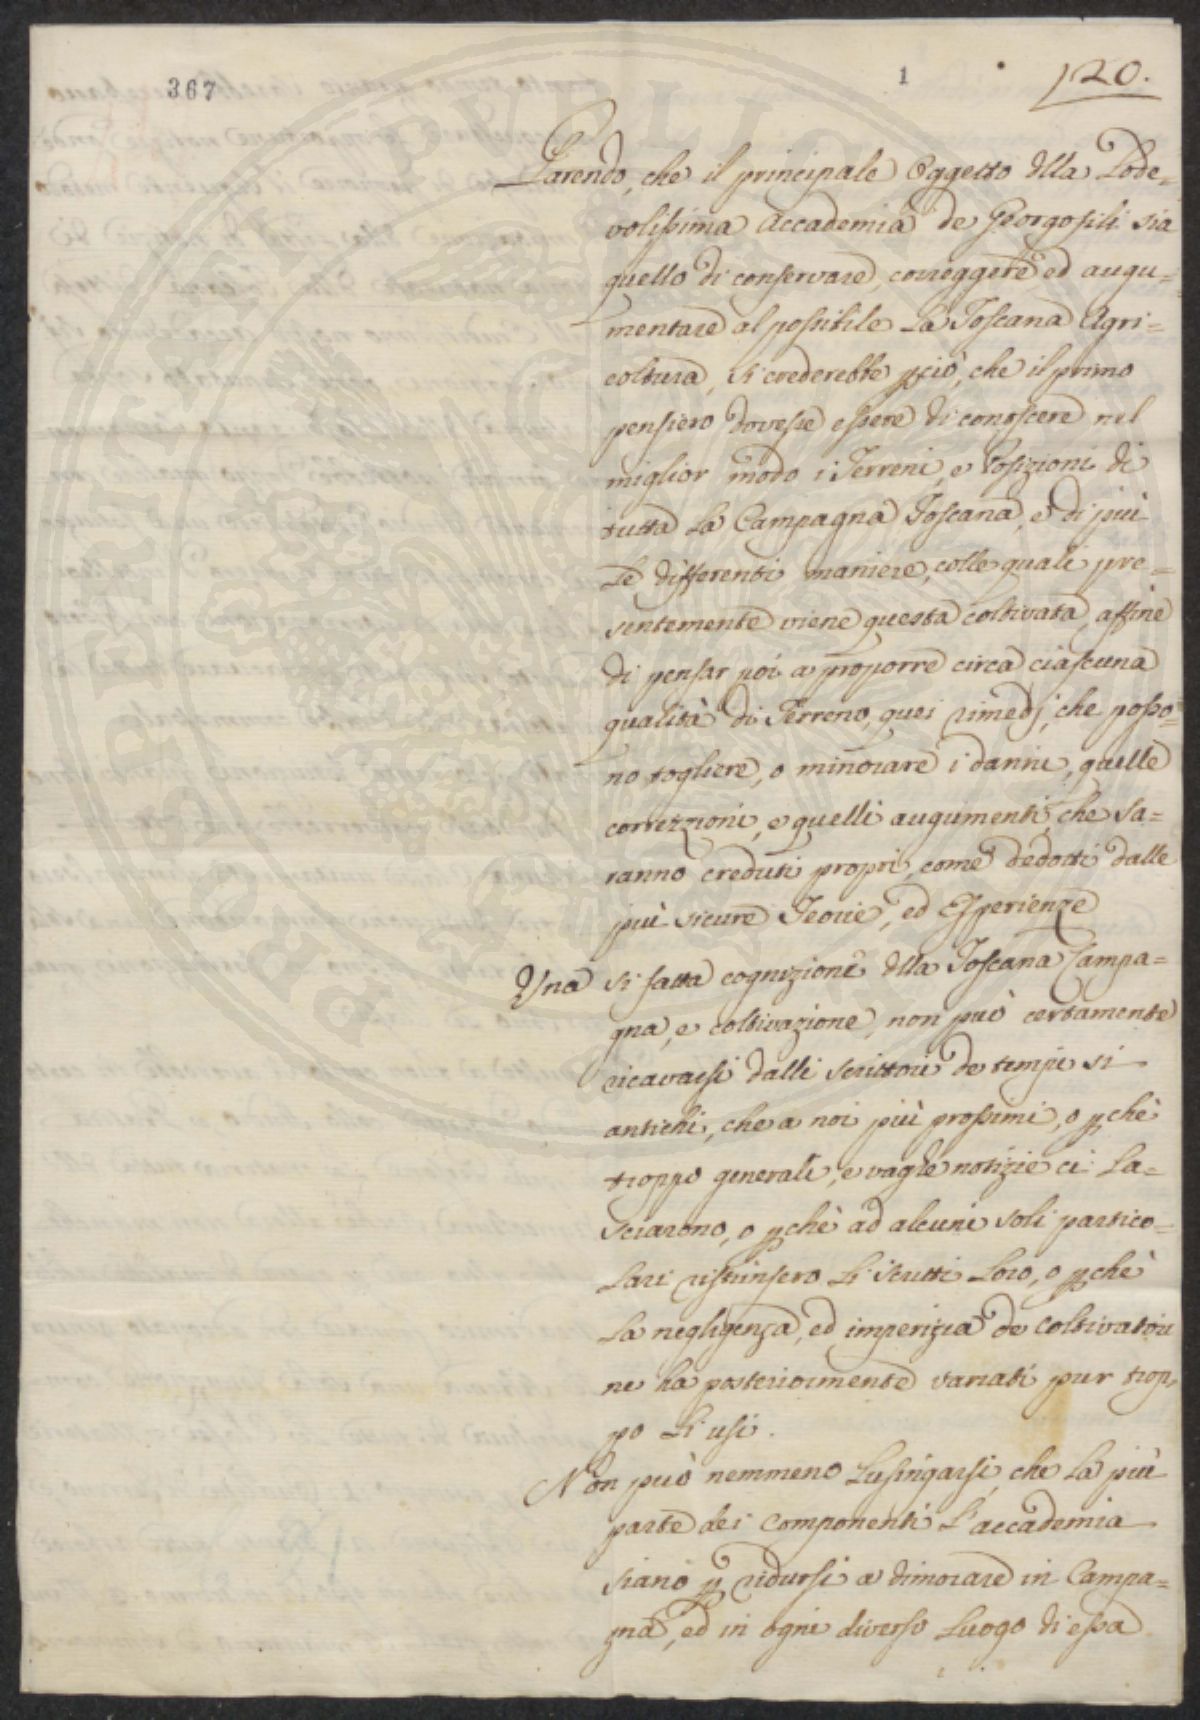 367
1
120.
Parendo, che il principale Oggetto dlla Lode=
volissima Accademia de Georgofili sia
quello di conservare, correggere ed augu=
mentare al possibile La Toscana Agri=
coltura, si crederebbe pciò, che il primo
pensiero dovesse essere di conoscere nel
miglior modo i Terreni, e Posizioni di
tutta La Campagna Toscana, e di più
Le differenti maniere, colle quali pre=
sentemente viene questa coltivata, affine
di pensar poi a proporre circa ciascuna
qualità di Terreno, quei rimedj, che posso=
no togliere, o minorare i danni, quelle
correzzioni, e quelli augumenti, che sa=
ranno creduti propri, come dedotti dalle
più sicure Teorie, ed Esperienze
Una si fatta cognizione dlla Toscana Campa=
gna, e coltivazione, non può certamente
ricavarsi dalli scrittori de tempi si
antichi, che a noi più prossimi, o pchè
troppo generali, e vaghe notizie ci La=
sciarono, o pchè ad alcuni soli partico=
Lari ristrinsero Li scritti Loro, o pchè
La negligenza, ed imperizia de Coltivatori
ne ha posteriormente variati pur trop=
po Li usi.
Non può nemmeno Lusingarsi, che La più
parte dei Componenti L'accademia
siano p ridursi a dimorare in Campa=
gna, ed in ogni diverso Luogo di essa
PROPRIETÀ PUBLICA